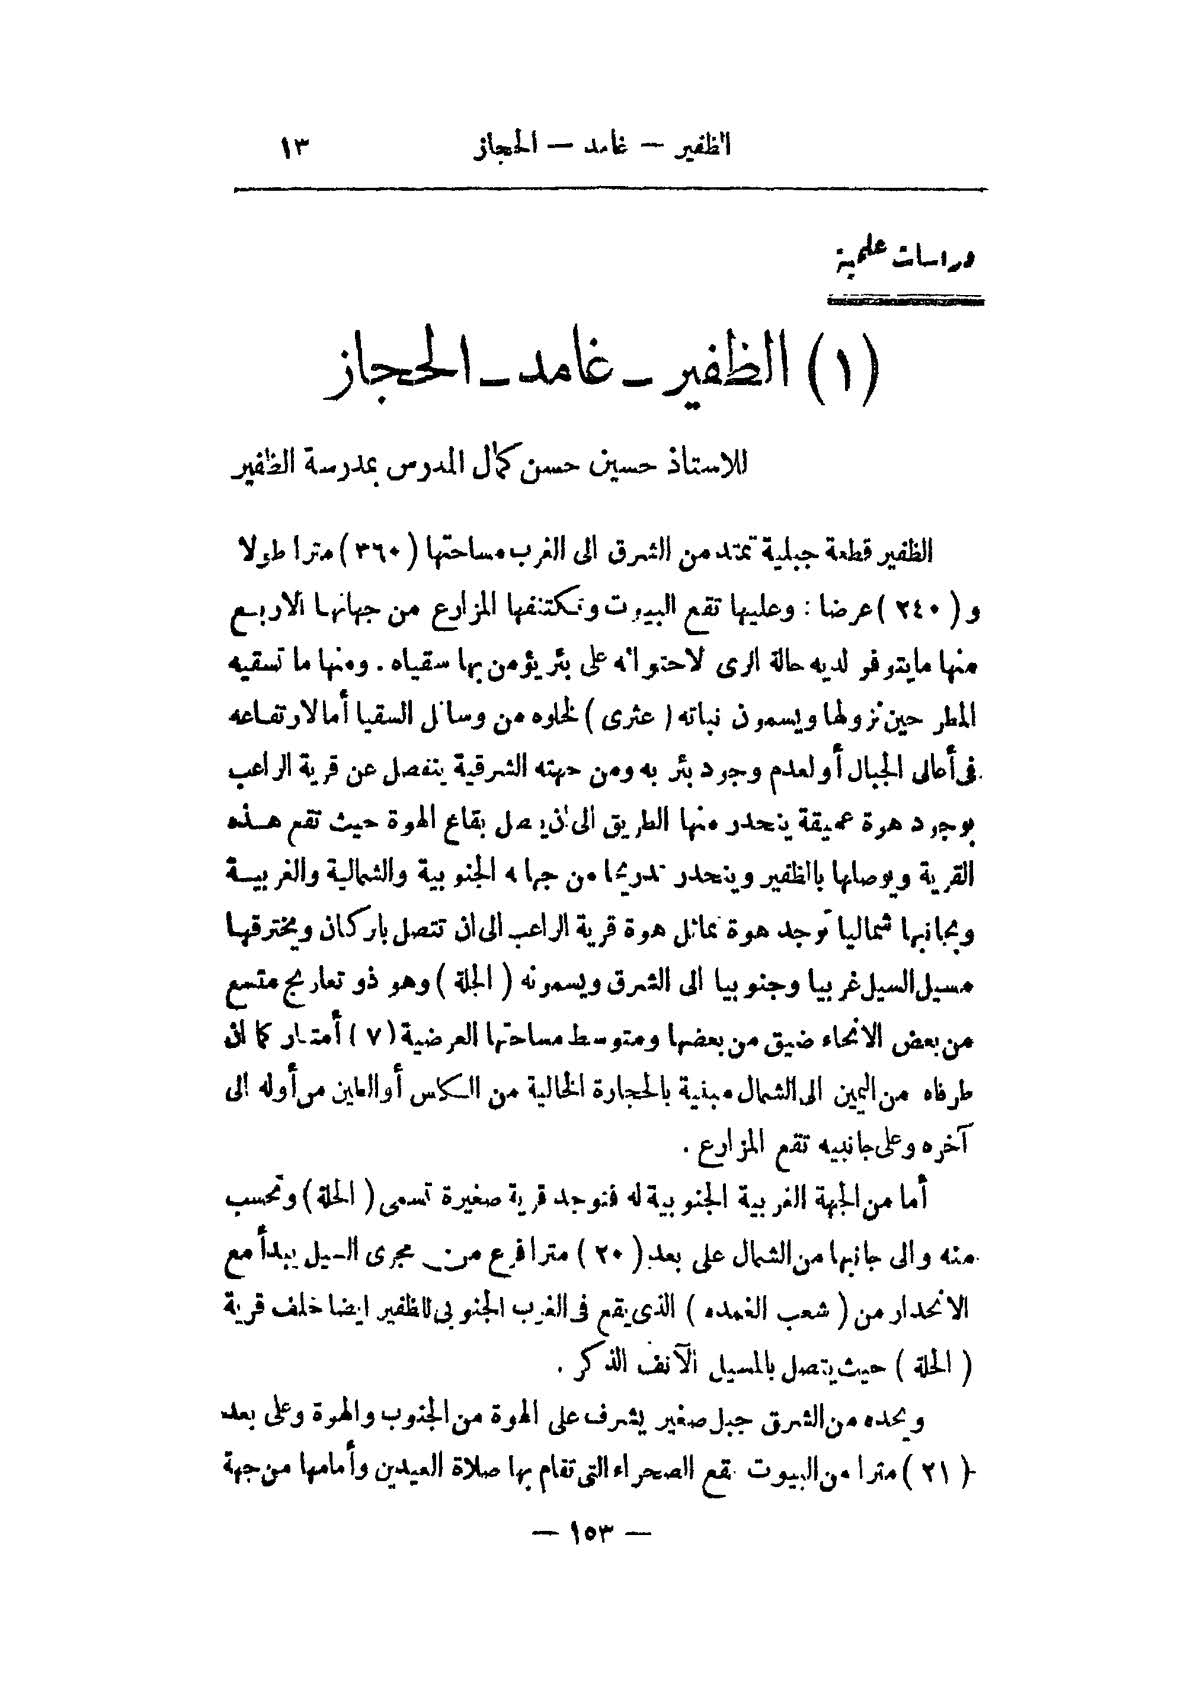 الظفير — غامد — الحجاز ١٣
دراسات علمية
(١) الظفير ـ غامد ـ الحجاز
للاستاذ حسين حسن كمال المدرس بمدرسة الظفير
الظفير قطعة جبلية تمتد من الشرق الى الغرب مساحتها (٣٦٠) مترا طولا
و (٢٤٠) عرضا : وعليها تقع البيوت وتكتنفها المزارع من جهاتها الاربع
منها مايتوفو لديه حالة الرى لاحتوائه على بئر يؤمن بها سقياه . ومنها ما تسقيه
المطر حين نزولها ويسمون نباته (عثرى) لخلوه من وسائل السقيا أما لارتفاعه
فى أعالى الجبال أو لعدم وجود بئر به ومن جهته الشرقية ينفصل عن قرية الراعب
بوجود هوة عميقة ينحدر منها الطريق الى ان يصل بقاع الهوة حيث تقع هذه
القرية ويوصلها بالظفير وينحدر تدريجا من جهاته الجنوبية والشمالية والغربية
وبجانبها شماليا توجد هوة تماثل هوة قرية الراعب الى ان تتصل باركان ويخترقها
مسيل السيل غربيا وجنوبيا الى الشرق ويسمونه (الجلة) وهو ذو تعاريج متسع
من بعض الانحاء ضيق من بعضها ومتوسط مساحتها العرضية (٧) أمتار كما ان
طرفاه من اليمين الى الشمال مبنية بالحجارة الخالية من الكلس أو الطين من أوله الى
آخره وعلى جانبيه تقع المزارع .
أما من الجهة الغربية الجنوبية له فتوجد قرية صغيرة تسمى (الحلة) وتحسب
منه والى جانبها من الشمال على بعد (٢٠) مترا فرع من مجرى السيل يبدأ مع
الانحدار من (شعب الغمده) الذى يقع فى الغرب الجنوبى للظفير ايضا خلف قرية
(الحلة) حيث يتصل بالمسيل الآنف الذكر .
ويحده من الشرق جبل صغير يشرف على الهوة من الجنوب والهوة وعلى بعد
(٢١) مترا من البيوت تقع الصحراء التى تقام بها صلاة العيدين وأمامها من جهة
— ١٥٣ —